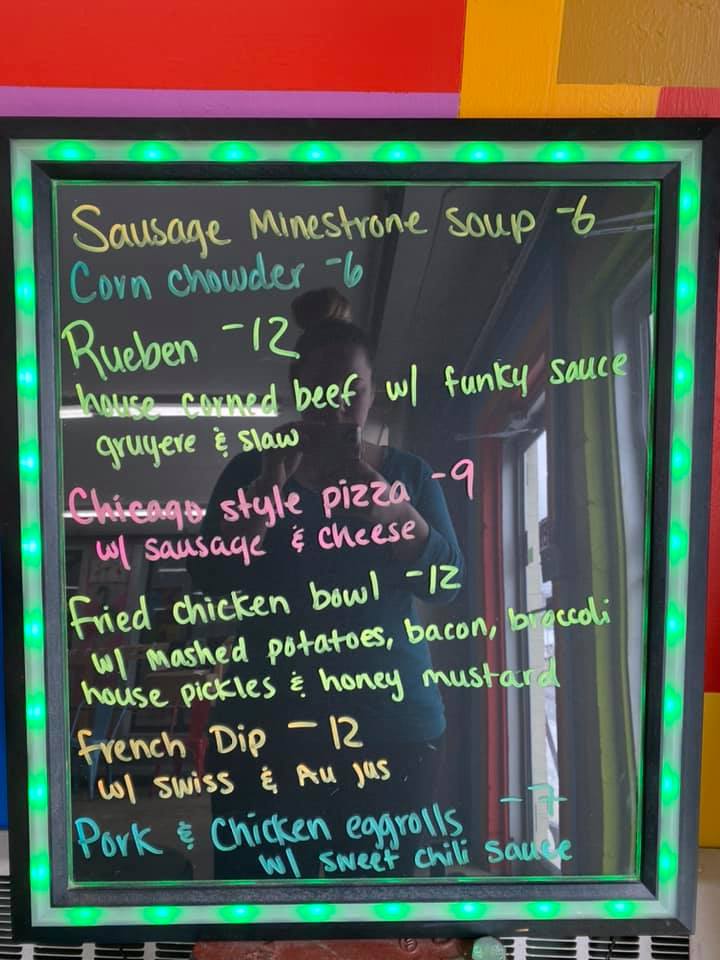 Sausage Minestrone Soup -6
Corn chowder -6
Rueben -12
house corned beef w/ funky sauce
gruyere & slaw
Chicago style pizza -9
w/ sausage & cheese
Fried chicken bowl -12
w/ mashed potatoes, bacon, broccoli
house pickles & honey mustard
French Dip - 12
w/ swiss & Au jus
Pork & Chicken eggrolls -7
w/ sweet chili sauce